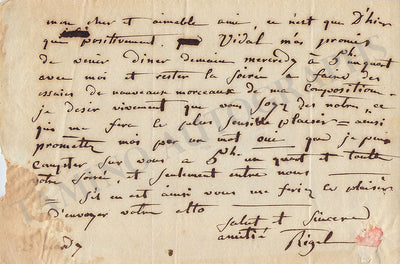 mon cher et aimable ami, ce n'est que D'hier
que positivement Vidal m'as promis
de venir diner demain mercredy a 5h un quart
avec moi et rester la soirée a faire des
essaies de nouveaux morceaux de ma Composition.
je desir vivement que vous soyz des notres, ce
qui me fera le plus sensible plaisir = ainsi
promettez mois par un mot oui que je puis
compter sur vous a 5h. un quart et toute
votre soirée, et seulement entre nous
Sil en est ainsi vous me feriez le plaisir
d'envoyer votre alto
Salut et Sincere
amitié Rigel